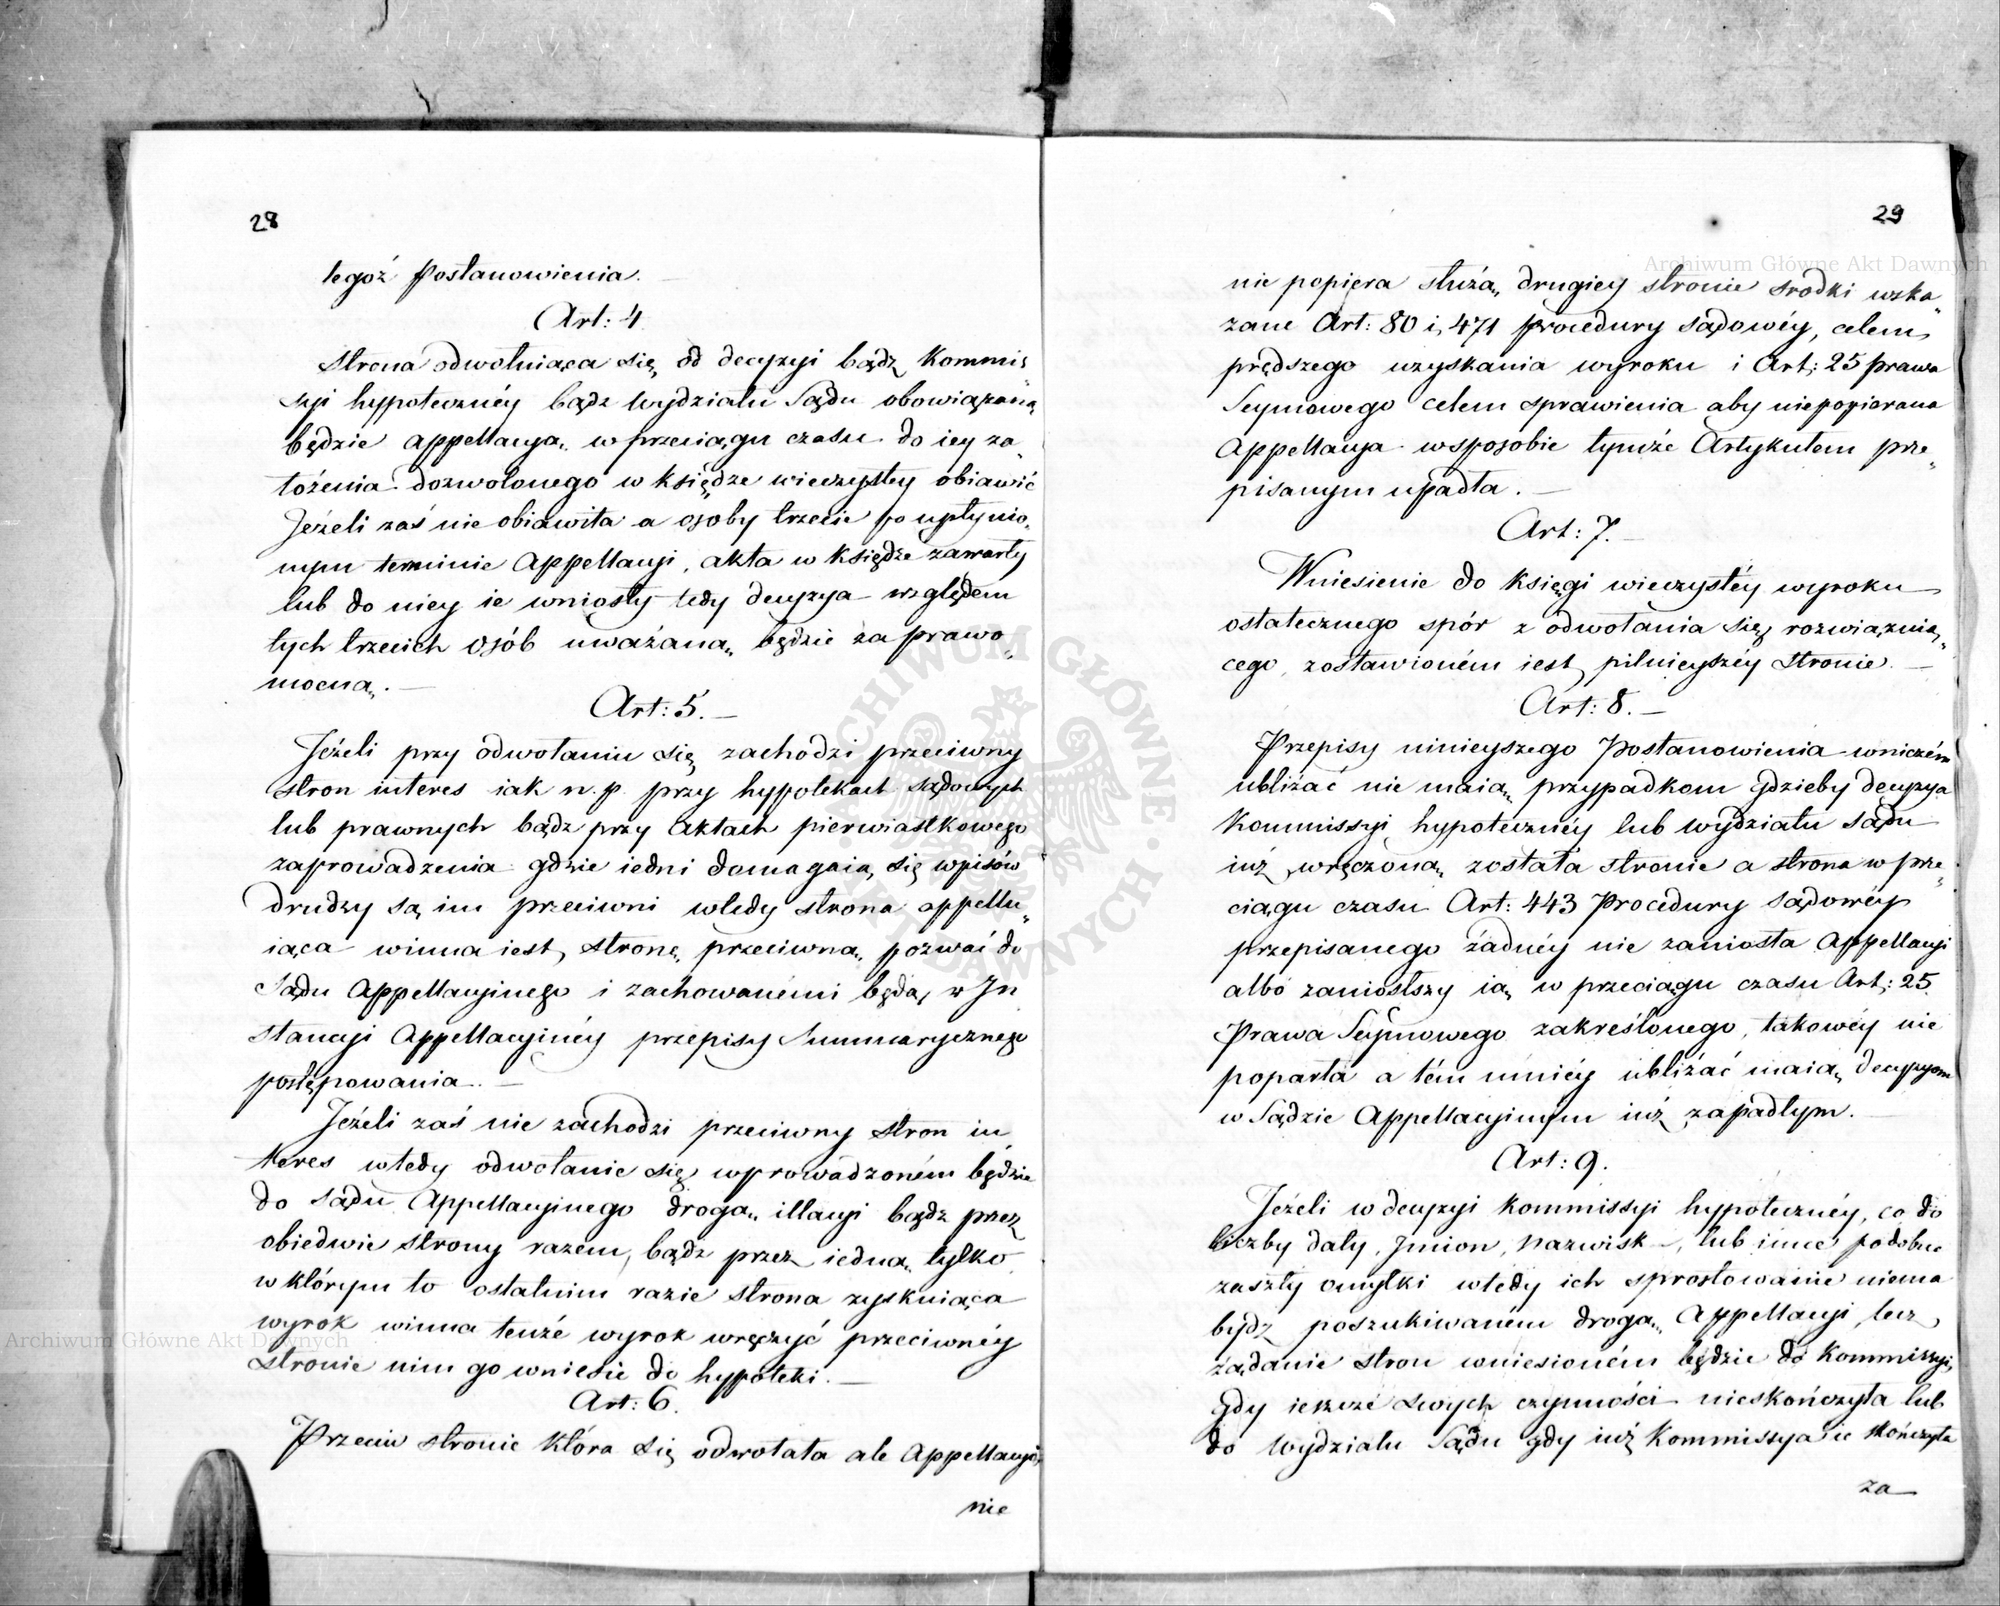 28
tegoż Postanowienia. —
Art: 4.
Strona odwołuiąca się od decyzyi bądź Kommis„
syi hypoteczney bądź Wydziału Sądu obowiązaną
będzie appellacyą w przeciągu czasu do iey za„
łożenia dozwolonego w księdze wieczystey obiawić
Jeżeli zaś nie obiawiła a osoby trzecie po upłynio„
nym terminie Appellacyi, akta w księdze zawarły
lub do niey ie wniosły tedy decyzya względem
tych trzecich osób uważaną będzie za prawo„
mocną. —
Art: 5. —
Jeżeli przy odwołaniu się zachodzi przeciwny
stron interes iak n. p. przy hypotekach sądowych
lub prawnych bądź przy aktach pierwiastkowego
zaprowadzenia gdzie iedni domagaią się wpisów
drudzy są im przeciwni wtedy strona appellu„
iąca winna iest stronę przeciwną pozwać do
Sądu Appellacyinego i zachowanémi będą w In
stancyi Appellacyinéy przepisy Summarycznego
postępowania. —
Jeżeli zaś nie zachodzi przeciwny stron in
teres wtedy odwołanie się wprowadzoném będzie
do Sądu Appellacyinego drogą illacyi bądź przez
obiedwie strony razem, bądź przez iedną tylko
w którym to ostatnim razie strona zyskuiąca
wyrok winna tenże wyrok wręczyć przeciwnéy
stronie nim go wniesie do hypoteki. —
Art: 6.
Przeciw stronie która się odwołała ale Appellacyi
nie
29
nie popiera służą drugiey stronie srodki wska„
zane Art: 80 i 471 procedury sądowéy, celem
prędszego uzyskania wyroku i Art: 25 prawa
Seymowego celem sprawienia aby niepopierana
Appellacya wsposobie tymże Artykułem prze„
pisanym upadła. —
Art: 7. —
Wniesienie do księgi wieczystéy wyroku
ostatecznego spór z odwołania się rozwiązuią„
cego, zostawioném iest pilnieyszéy stronie. —
Art: 8. —
Przepisy ninieyszego Postanowienia wniczém
ubliżać nie maią przypadkom gdzieby decyzya
Kommissyi hypotecznéy lub wydziału sądu
iuż wręczoną została stronie a strona w prze„
ciągu czasu Art: 443 Procedury sądowéy
przepisanego żadnéy nie zaniosła Appellacyi
albo zaniosłszy ią w przeciągu czasu Art: 25.
Prawa Seymowego zakreślonego, takowéy nie
poparła a tém mniéy ubliżać maią decyzyom
w Sądzie Appellacyinym iuż zapadłym. —
Art: 9.
Jeżeli w decyzyi Kommissyi hypotecznéy, co do
liczby daty, Jmion, Nazwisk, lub inne podobne
zaszły omyłki wtedy ich sprostowanie niema
bydź poszukiwaném drogą Appellacyi lecz
żądanie stron wniesioném będzie do Kommissyi,
gdy ieszcze swych czynności nieskończyła lub
do Wydziału Sądu gdy iuż Kommissya ie skończyła
za
Archiwum Główne Akt Dawnych
Archiwum Główne Akt Dawnych
ARCHIWUM GŁÓWNE
AKT DAWNYCH